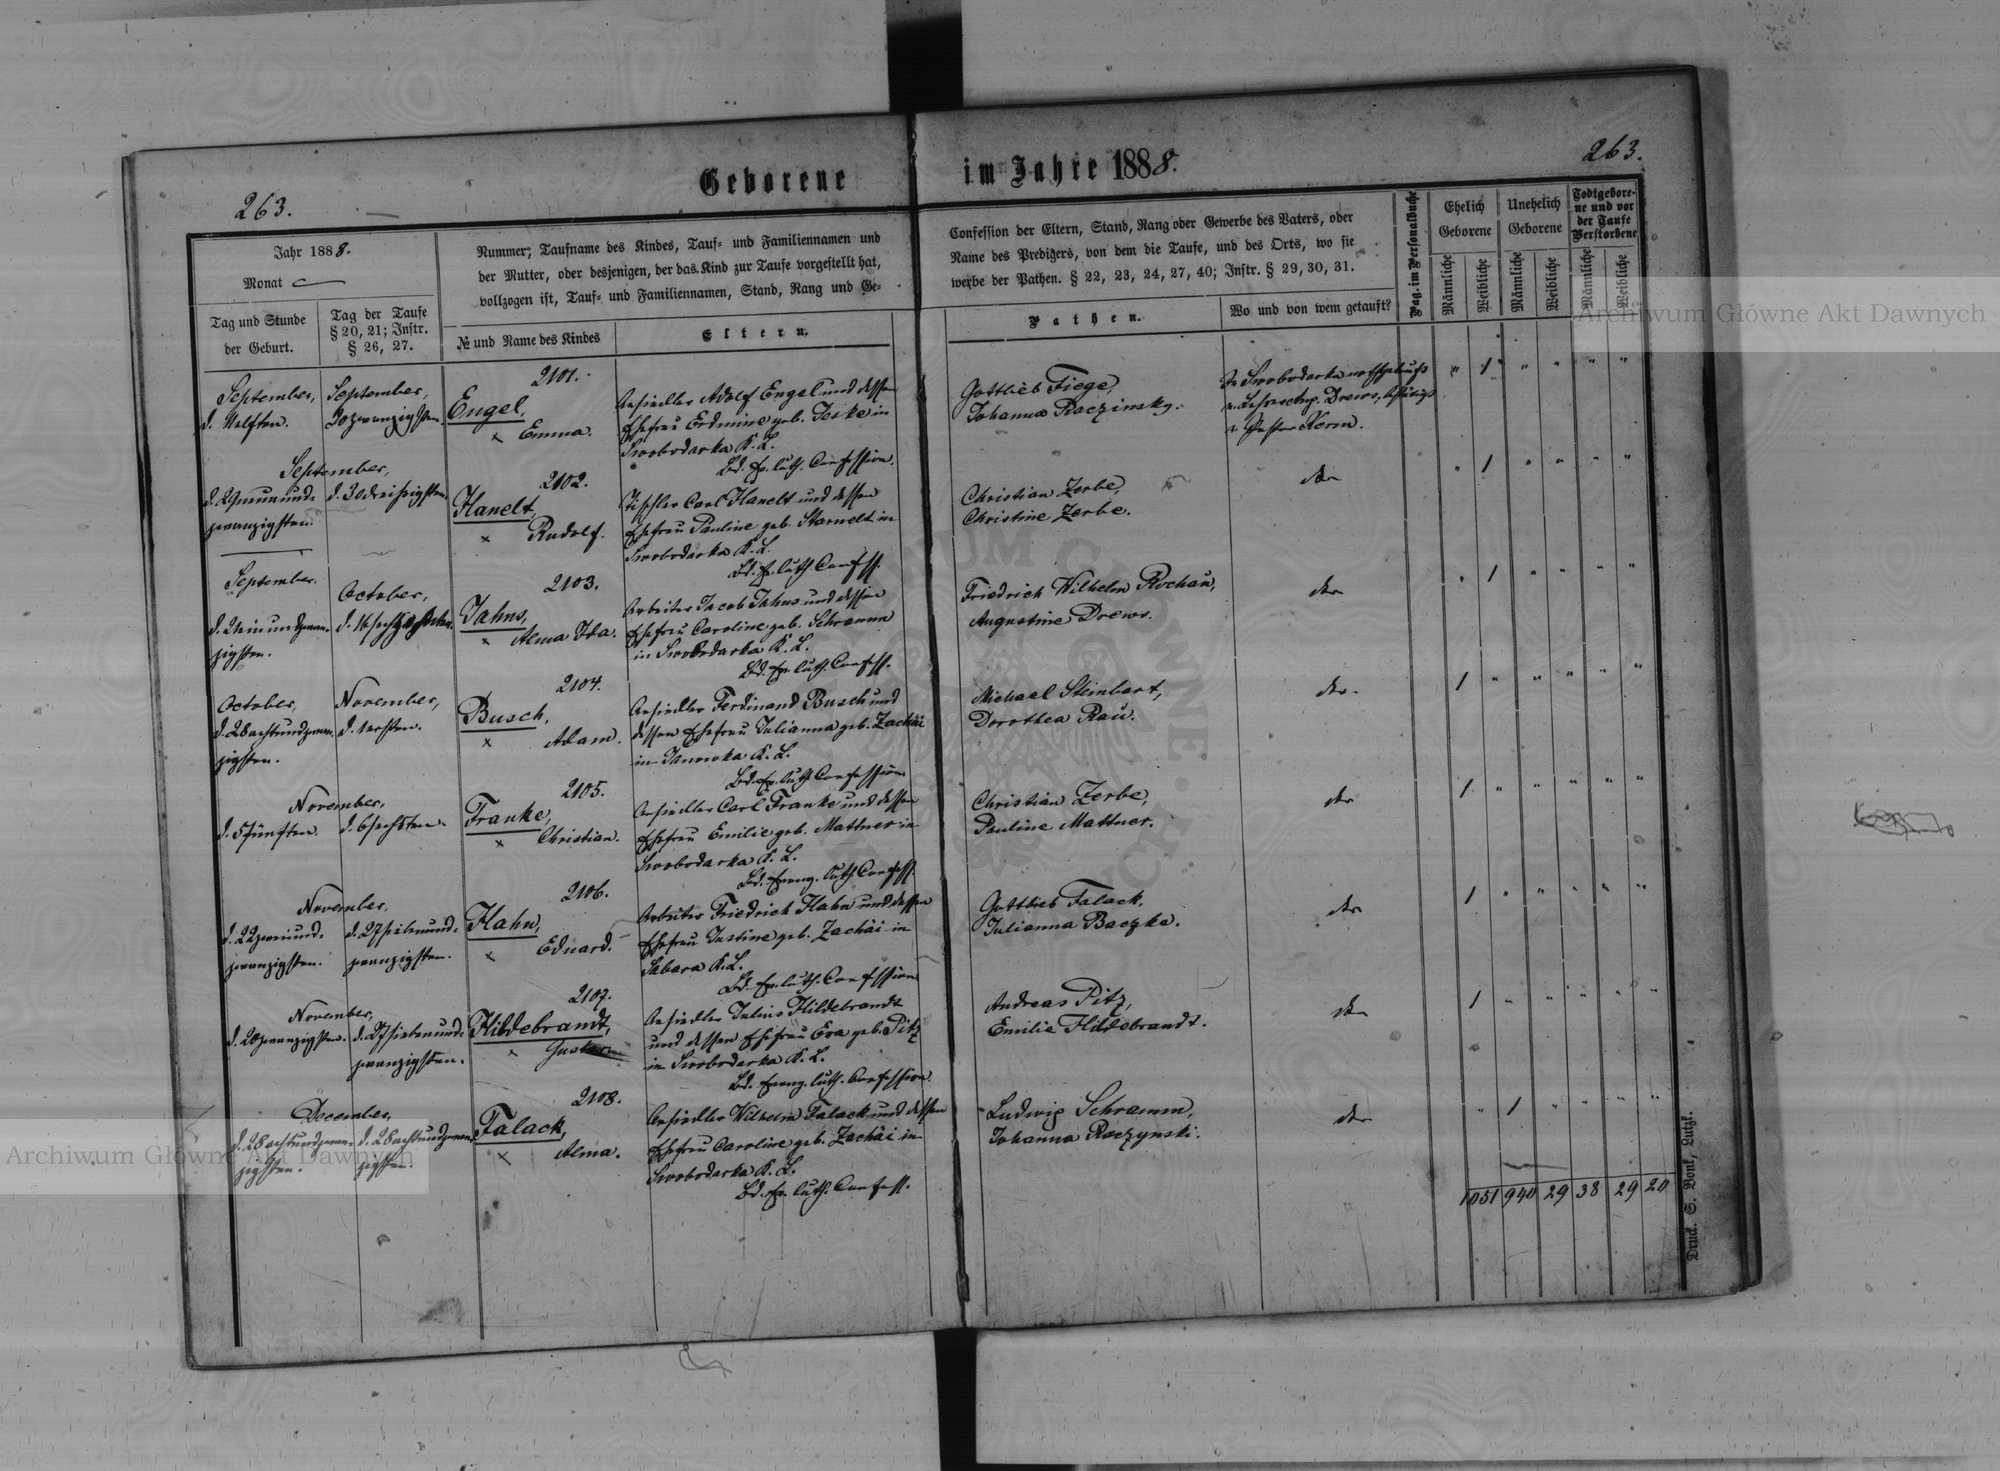 Geborene im Jahre 1888.
263.
263.
Jahr 1888.
Monat
Tag und Stunde
der Geburt.
Tag der Taufe
§ 20, 21; Instr.
§ 26, 27.
Nummer, Taufname des Kindes, Tauf- und Familiennamen und
der Mutter, oder desjenigen, der das Kind zur Taufe vorgestellt hat,
vollzogen ist, Tauf- und Familiennamen, Stand, Rang und Ge-
№ und Name des Kindes
Eltern.
Confession der Eltern, Stand, Rang oder Gewerbe des Vaters, oder
Name des Predigers, von dem die Taufe, und des Orts, wo sie
werbe der Pathen. § 22, 23, 24, 27, 40; Instr. § 29, 30, 31.
Pathen.
Wo und von wem getauft?
Pag. im Personalbuche
Ehelich
Geborene
Unehelich
Geborene
Todtgebore-
ne und vor
der Taufe
Verstorbene
Männliche
Weibliche
Männliche
Weibliche
Männliche
Weibliche
September,
d. 11elften.
September,
20zwanzigsten.
2101.
Engel,
Emma.
Ansiedler Adolf Engel und dessen
Ehefrau Erdmine geb. Jeske in
Swobodarka K. L.
Bd. Ev. luth. Confession.
Gottlieb Fiege,
Johanna Raczinsky.
In Swobodarka
Drews,
Pastor Kerm.
" 1 " " " "
September,
d. 29neunund-
zwanzigsten.
d. 30dreißigsten.
2102.
Hanelt,
Rudolf.
Tischler Carl Hanelt und dessen
Ehefrau Pauline geb. Stamelt in
Swobodarka K. L.
Bd. Ev. luth. Confess.
Christian Zerbe,
Christine Zerbe.
dto
" 1 " " " "
September.
zigsten.
October,
d. 16sechzehnten.
2103.
Jahns,
Alma Ida.
Arbeiter Jacob Jahns und dessen
Ehefrau Caroline geb. Schramm
in Swobodarka K. L.
Bd. Ev. luth. Confess.
Friedrich Wilhelm Rochau,
Augustine Drews.
dto
" 1 " " " "
October,
d. 28achtundzwan-
zigsten.
November,
d. 1ersten.
2104.
Busch,
Adam.
Ansiedler Ferdinand Busch und
dessen Ehefrau Julianna geb. Zachäi
in Janowka K. L.
Bd. Ev. luth. Confession.
Michael Steinbart,
Dorothea Rau.
dto.
1 " " " " "
November,
d. 5fünften.
d. 6sechsten.
2105.
Franke,
Christian.
Ansiedler Carl Franke und dessen
Ehefrau Emilie geb. Mattner in
Swobodarka K. L.
Bd. Evang. luth. Confess.
Christian Zerbe,
Pauline Mattner.
dto
1 " " " " "
November,
d. 22zweiund-
zwanzigsten.
d. 27siebenund-
zwanzigsten.
2106.
Hahn,
Eduard.
Arbeiter Friedrich Hahn und dessen
Ehefrau Justine geb. Zachäi in
Sabara K. L.
Bd. Ev. luth. Confession
Gottlieb Falack,
Julianna Baczke.
dto
1 " " " " "
November,
d. 20zwanzigsten.
d. 27siebenund-
zwanzigsten.
2107.
Hildebrandt,
Gustav
Ansiedler Julius Hildebrandt
und dessen Ehefrau Eva geb. Pitz
in Swobodarka K. L.
Bd. Evang. luth. Confession.
Andreas Pitz,
Emilie Hildebrandt.
dto
1 " " " " "
December,
d. 28achtundzwan-
zigsten.
d. 28achtundzwan-
zigsten.
2108.
Falack,
Alma.
Ansiedler Wilhelm Falack und dessen
Ehefrau Caroline geb. Zachäi in
Swobodarka K. L.
Bd. Ev. luth. Confess.
Ludwig Schramm,
Johanna Raczynski.
dto
" 1 " " " "
1051 940 29 38 29 20
Druck. S. Bonk, Lutzk.
Archiwum Główne Akt Dawnych
Archiwum Główne Akt Dawnych